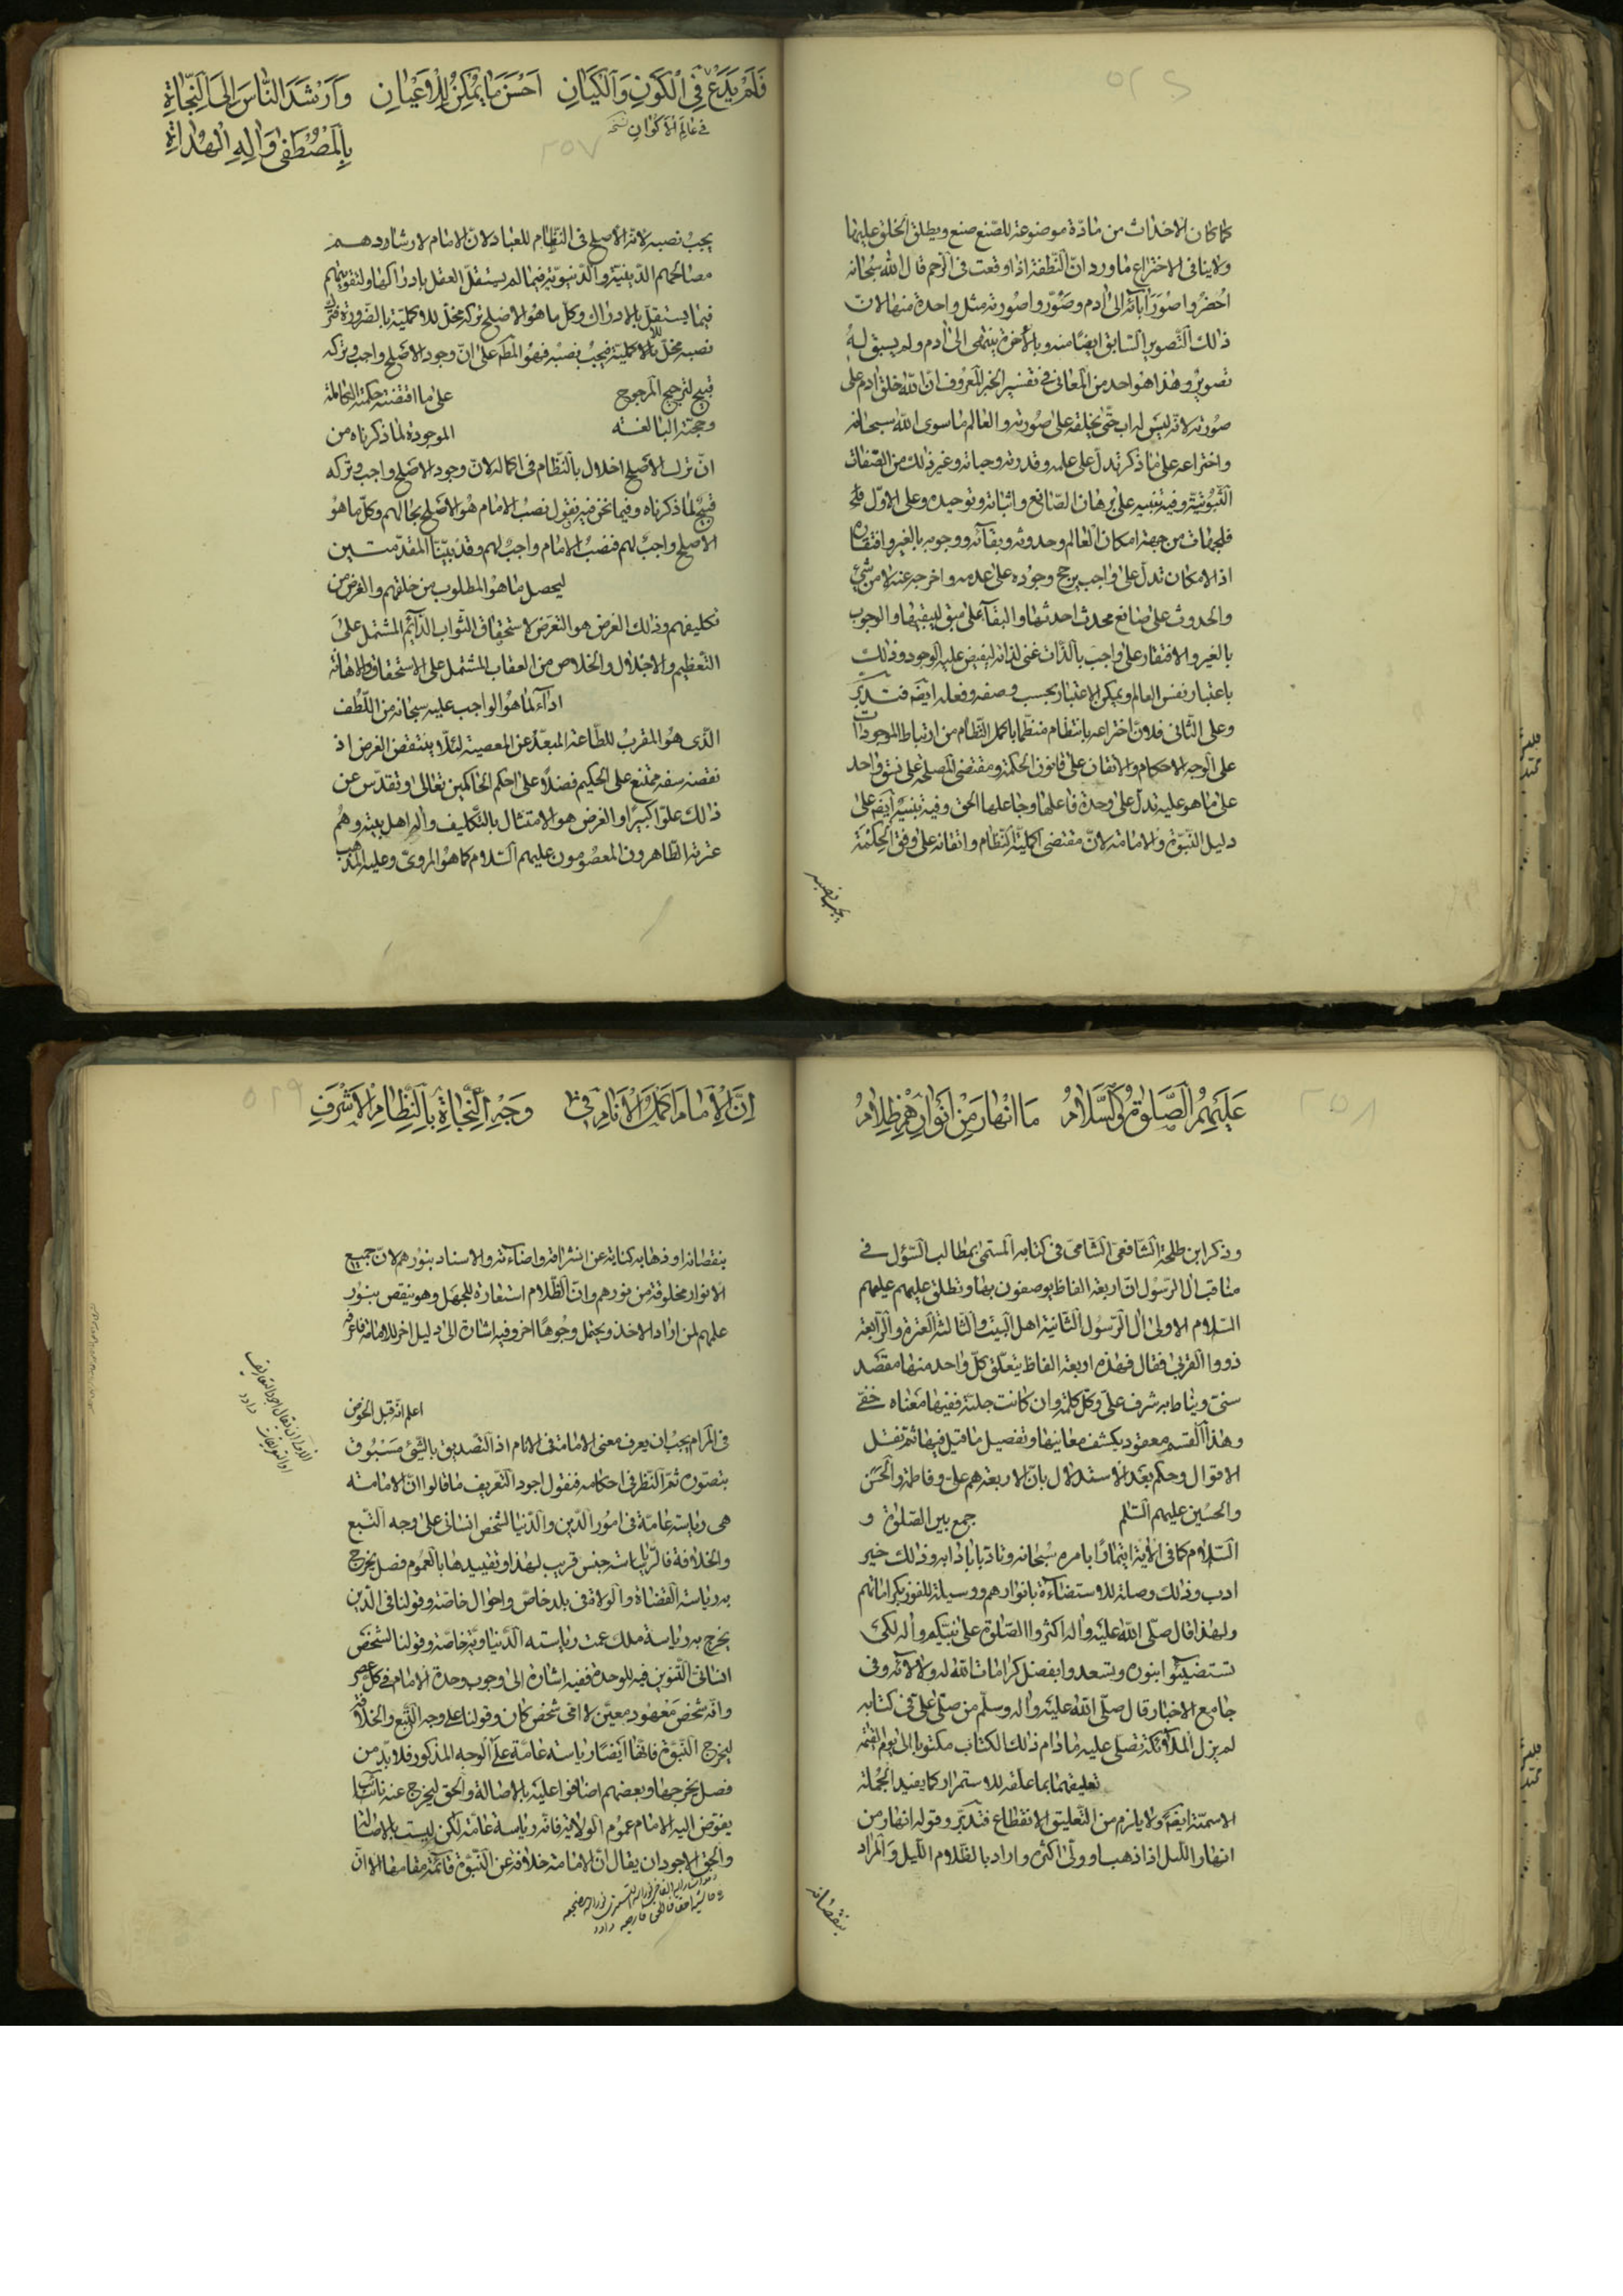 كما كان الاحداث من مادة موضوعة للصنع صنع ويطلق الخلق عليهما
ولا ينافى الاختراع ما ورد ان النطفة اذا وقعت فى الرحم قال الله سبحانه
احضروا صور آبائه الى ادم وصوروا صورته مثل واحدة منها لان
ذلك التصوير السابق ايضا منه وبالأخرة ينتهى الى ادم ولم يسبق له
تصوير وهذا هو احد من المعانى فى تفسير الخبر المعروف ان الله خلق ادم على
صورته لانه ليس له اب حتى يخلقه على صورته والعالم ما سوى الله سبحانه
واختراعه على ما ذكر تدل على علمه وقدرته وحياته وغير ذلك من الصفات
الثبوتية وفيه تنبيه على برهان الصانع واثباته وتوحيده وعلى الاول
فلجهات من جهة امكان العالم وحدوثه وبقائه ووجوبه بالغير وافتقاره
اذ الامكان تدل على واجب يرجح وجوده على عدمه واخرجه عنه لا من شئ
والحدوث على صانع محدث احدثها والبقاء على مبق ليبقيها والوجوب
بالغير والافتقار على واجب بالذات غنى لذاته ليفيض عليه الوجود وذلك
باعتبار نفس العالم ويمكن الاعتبار بحسب وصفه وفعله ايضه فتدبر
وعلى الثانى فلان اختراعه بانتظام منتظما باكمل النظام من ارتباط الموجودات
على الوجه الاحكام والاتقان على قانون الحكمة ومقتضى المصلحة على نسق واحد
على ما هو عليه تدل على وحدة فاعلها وجاعلها الحق وفيه تنبيه ايضه على
دليل النبوة والامامة لان مقتضى اكملية النظام واتقانه على وفق الحكمة
يجب نصبه
فَلَمْ يَدَعْ فِى الْكَوْنِ وَالْكَيَانِ اَحْسَنَ مَا يُمْكِنُ لِلْاَعْيَانِ وَاَرْشَدَ النَّاسَ اِلَى النَّجَاةِ
فى عالم الاكوان نسخه
بِالْمُصْطَفٰى وَاٰلِهِ الْهُدَاةِ
٢٥٧
يجب نصبه لانه الاصلح فى النظام للعباد لان الامام لارشادهم
مصالحهم الدينية والدنيوية فيما لم يستقل العقل بادراكها ولتقويتهم
فيما يستقل بالادراك وكل ما هو الاصلح تركه مخل للاكملية بالضرورة فترك
نصبه مخل بالاكملية فيجب نصبه فهو المطم على ان وجود الاصلح واجب وتركه
قبيح لترجيح المرجوح على ما اقتضته حكمته الكاملة
وحجته البالغة الموجودة لما ذكرناه من
ان ترك الاصلح اخلال بالنظام فى اكماله لان وجود الاصلح واجب وتركه
قبيح لما ذكرناه وفيما نحن فيه نقول نصب الامام هو الاصلح بحالهم وكل ما هو
الاصلح واجب لهم فنصب الامام واجب لهم وقد بيّنا المقدمتين
ليحصل ما هو المطلوب من خلقهم والغرض من
تكليفهم وذلك الغرض هو التعرض لاستحقاق الثواب الدائم المشتمل على
التعظيم والاجلال والخلاص من العقاب المشتمل على الاستحقاق والاهانة
اداء لما هو الواجب عليه سبحانه من اللطف
الذى هو المقرب للطاعة المبعد عن المعصية لئلا ينتقض الغرض اذ
نقضه سفه ممتنع على الحكيم فضلا على احكم الحاكمين تعالى وتقدس عن
ذلك علوا كبيرا والغرض هو الامتثال بالتكليف واله اهل بيته وهم
عترته الطاهرون المعصومون عليهم السلام كما هو المروى وعليه المذهب
عَلَيْهِمُ الصَّلٰوةُ وَالسَّلَامُ مَا انْهَارَ مِنْ اَنْوَارِهِمْ ظَلَامُ
٢٥٨
وذكر ابن طلحة الشافعى الشامى فى كتابه المسمى بمطالب السؤل فى
مناقب ال الرسول ان اربعة الفاظ يوصفون بها وتطلق عليهم عليهم
السلام الاولى ال الرسول الثانية اهل البيت والثالثة العترة والرابعة
ذووا القربى فقال فهذه اربعة الفاظ يتعلق كل واحد منها مقصد
سنى ويناط به شرف على وكل كلمة وان كانت جلية ففيها معناه خفى
وهذا القسم معقود يكشف معانيها وتفصيل ما قيل فيها ثم نقل
الاقوال وحكم بعد الاستدلال بان الاربعة هم على وفاطمة والحسن
والحسين عليهم السلم جمع بين الصلوة و
السلام كما فى الاية ايتمارا بامره سبحانه وتادبا بادابه وذلك خير
ادب وذلك وصلة للاستضاءة بانوارهم ووسيلة للفوز بكراماتهم
ولهذا قال صلى الله عليه واله اكثروا الصلوة على نبيكم واله لكى
تستضيئوا بنوره ويسعدوا بفضل كرامات الله له ولالائه وفى
جامع الاخبار قال صلى الله عليه واله وسلم من صلى على فى كتابه
لم يزل الملائكة تصلى عليه ما دام ذلك الكتاب مكتوبا الى يوم القيمة
تعليقهما بما علقه للاستمرار كما يفيد الجملة
الاسمية ايضه ولا يلزم من التعليق الانقطاع فتدبر وقوله انهار من
انهار الليل اذا ذهب او ولى اكثره واراد بالظلام الليل والمراد
بنقصانه
اِنَّ الْاِمَامَ اَكْمَلُ الْاَنَامِ فِى وَجْهِ النَّجَاةِ بِالنِّظَامِ الْاَشْرَفِ
بنقصانه او ذهابه كناية عن اشراقه واضاءته والاسناد بنورهم لان جميع
الانوار مخلوقة من نورهم وان الظلام استعارة للجهل وهو ينقص بنور
علمهم لمن اراد الاخذ ويحتمل وجوها اخر وفيه اشارة الى دليل اخر للامامة فاعرفه
اعلم انه قبل الخوض
فى المرام يجب ان يعرف معنى الامامة فى الانام اذ التصديق بالشئ مسبوق
بتصوره ثم النظر فى احكامه فنقول اجود التعريف ما قالوا ان الامامة
هى رياسة عامة فى امور الدين والدنيا لشخص انسانى على وجه التبع
والخلافة فالرياسة جنس قريب لهذا وتقييدها بالعموم فصل يخرج
به رياسة القضاة والولاة فى بلد خاص واحوال خاصة وقولنا فى الدين
يخرج به رياسة ملك عمت رياسته الدنياوية خاصة وقولنا لشخص
انسانى التنوين فيه للوحدة ففيه اشارة الى وجوب وحدة الامام فى كل عصر
وانه شخص معهود معين لا اى شخص كان وقولنا على وجه التبع والخلافة
ليخرج النبوة فانها ايضا رياسة عامة على الوجه المذكور فلا بد من
فصل يخرجها وبعضهم اضافوا عليه بالاصالة والحق ليخرج عنه نائب
يفوض اليه الامام عموم الولاية فانه رياسة عامة لكن ليست بالاصالة
والحق الاجود ان يقال ان الامامة خلافة عن النبوة قائمة مقامها الا ان